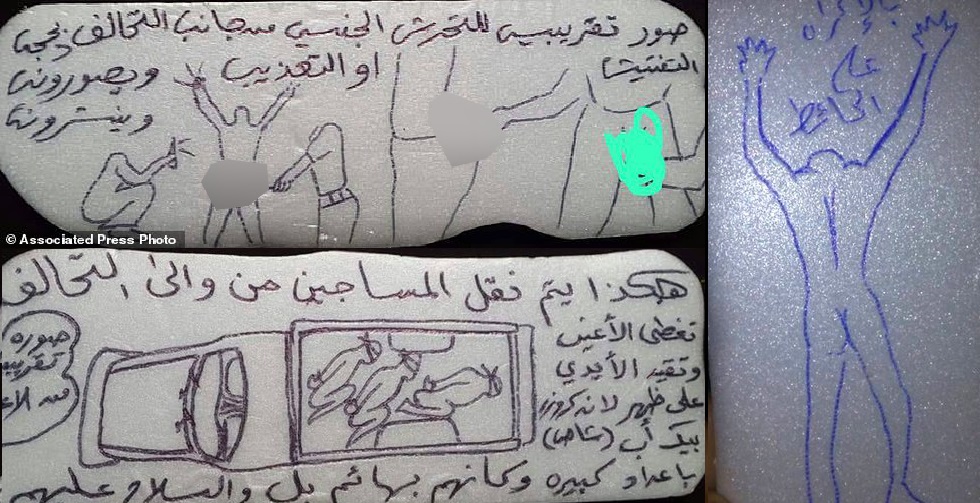 صور تقريبية للتحرش الجنسي من جانب التحالف بحجة
التفتيش او التعذيب ويصورونه
وينشرونه
© Associated Press Photo
هكذا يتم نقل المساجين من والى التحالف
تغطى الأعين
وتقيد الأيدي
على ظهر لاندكروزر
بيك أب (شاص)
باعداد كبيره وكأنهم بهائم بل والسلاح عليهم
صوره
تقريبية
من
على
الحائط